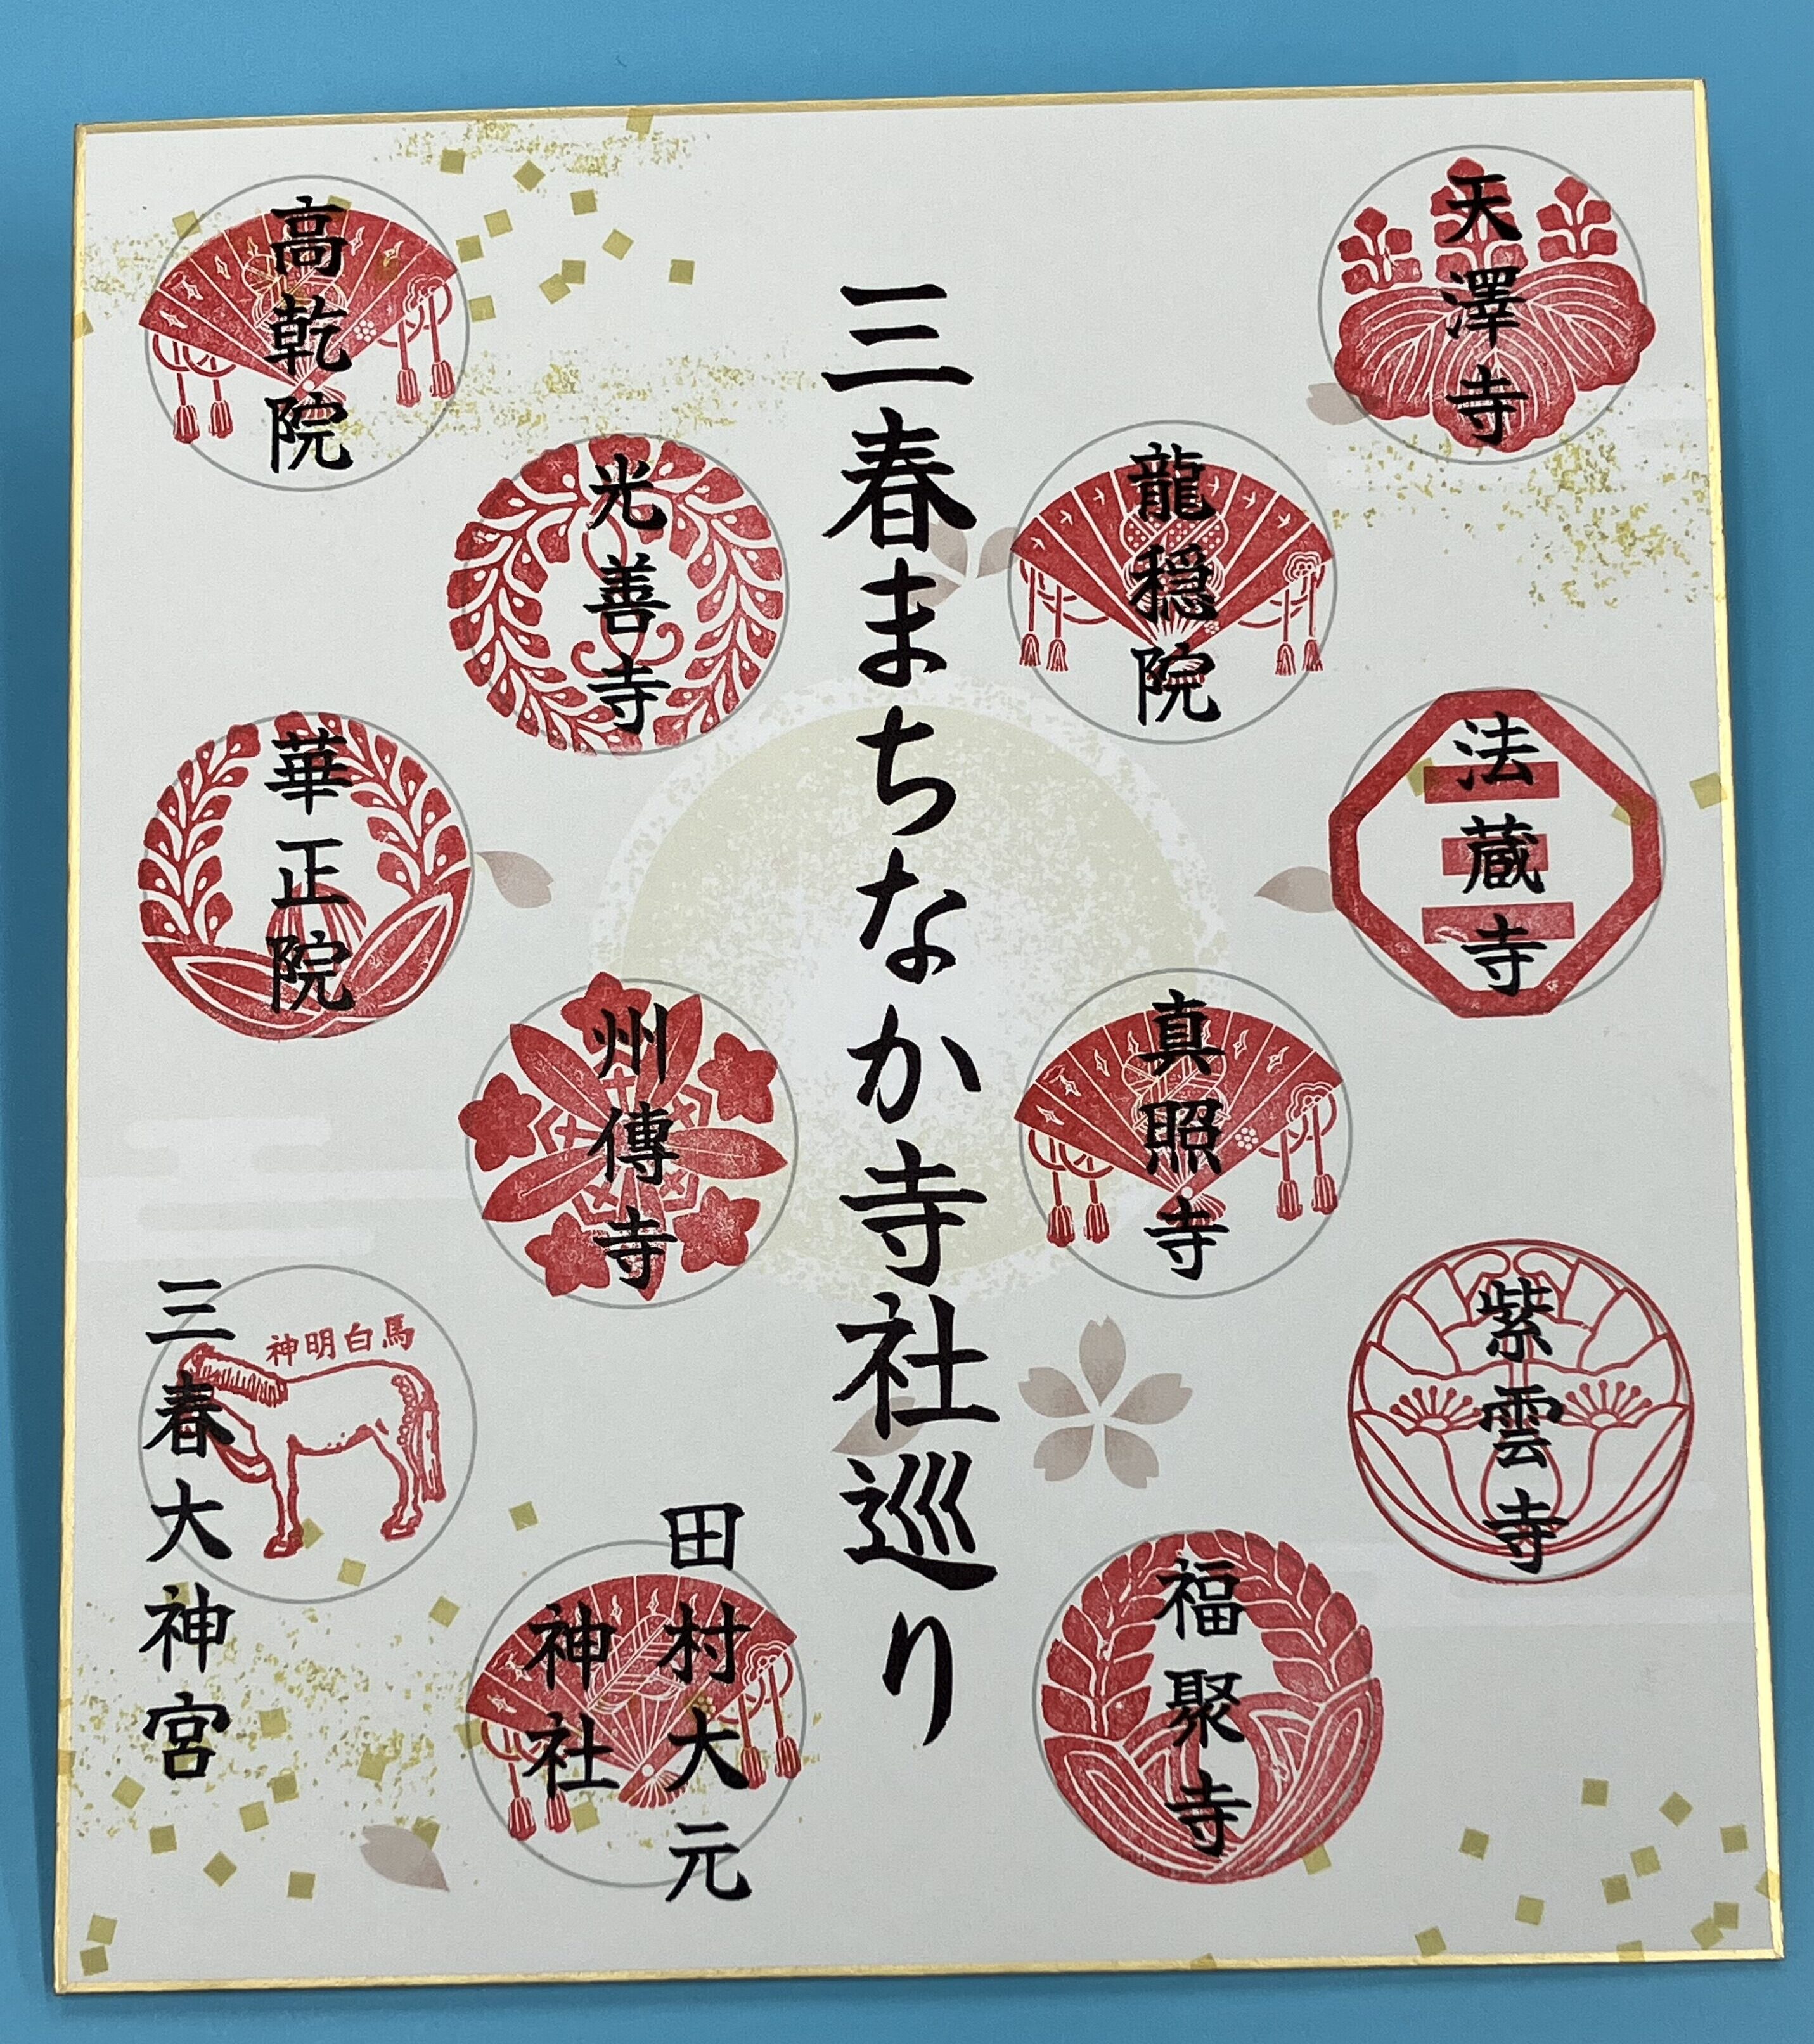 天澤寺
龍穏院
法蔵寺
真照寺
紫雲寺
福聚寺
三春まちなか寺社巡り
高乾院
光善寺
華正院
州傳寺
神明白馬
三春大神宮
田村大元
神社